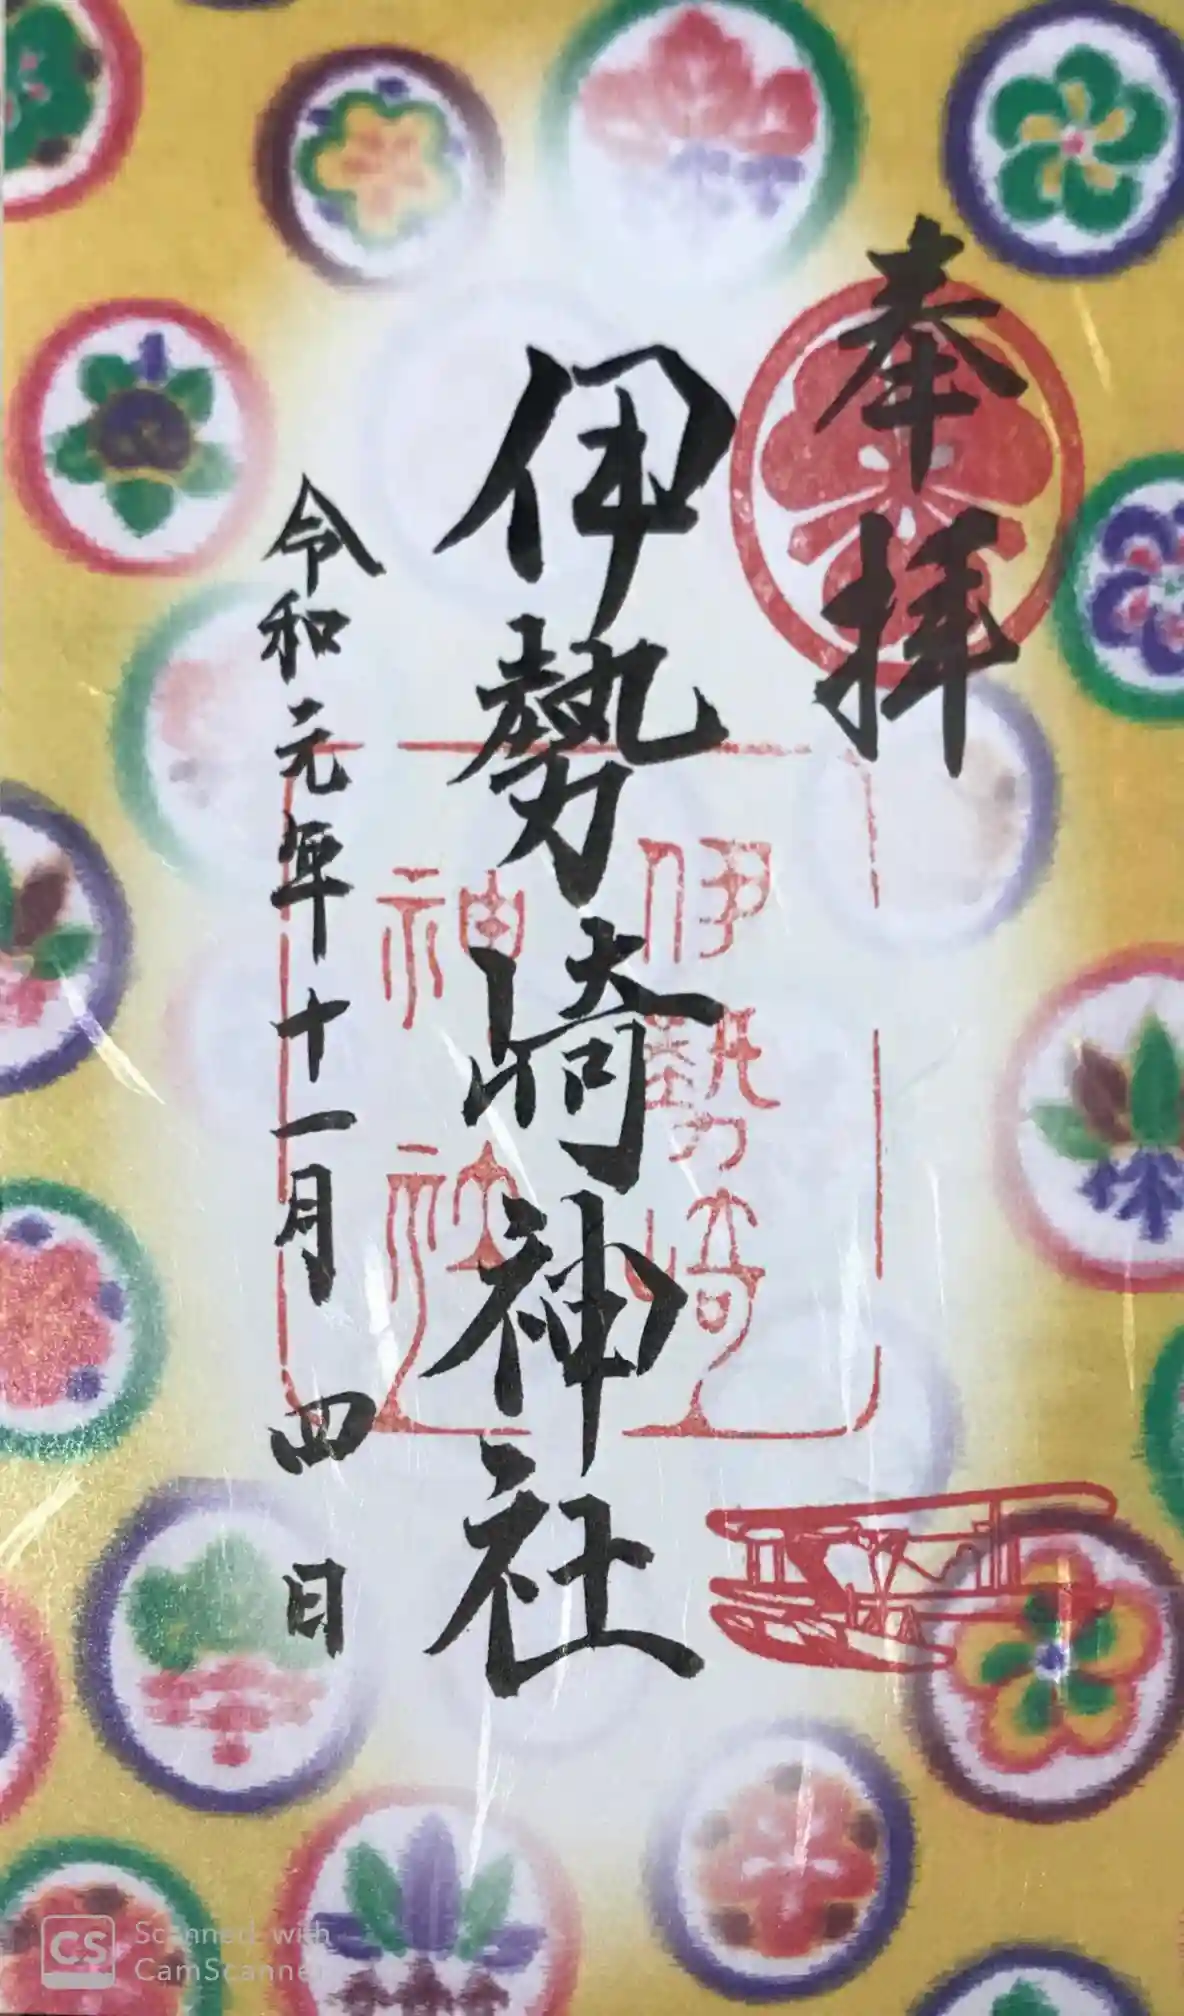 奉拝
伊勢崎神社
令和元年十一月四日
伊勢崎
神社
CS Scanned with
CamScanner